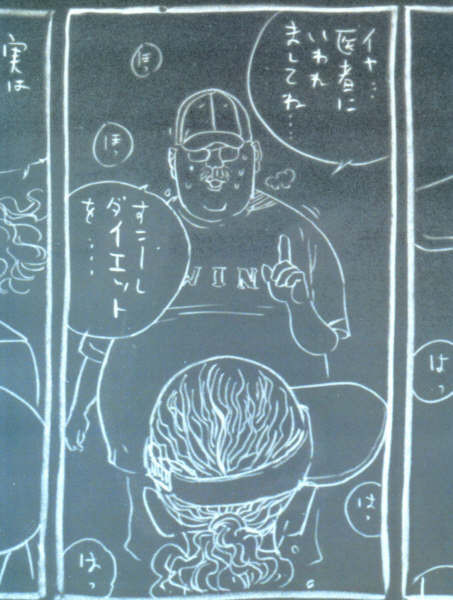 はっ
イヤ…
医者に
いわれ
ましてね……
ほっ
ほっ
すこーし
ダイエット
を……
WIN
はっ
はっ
実は